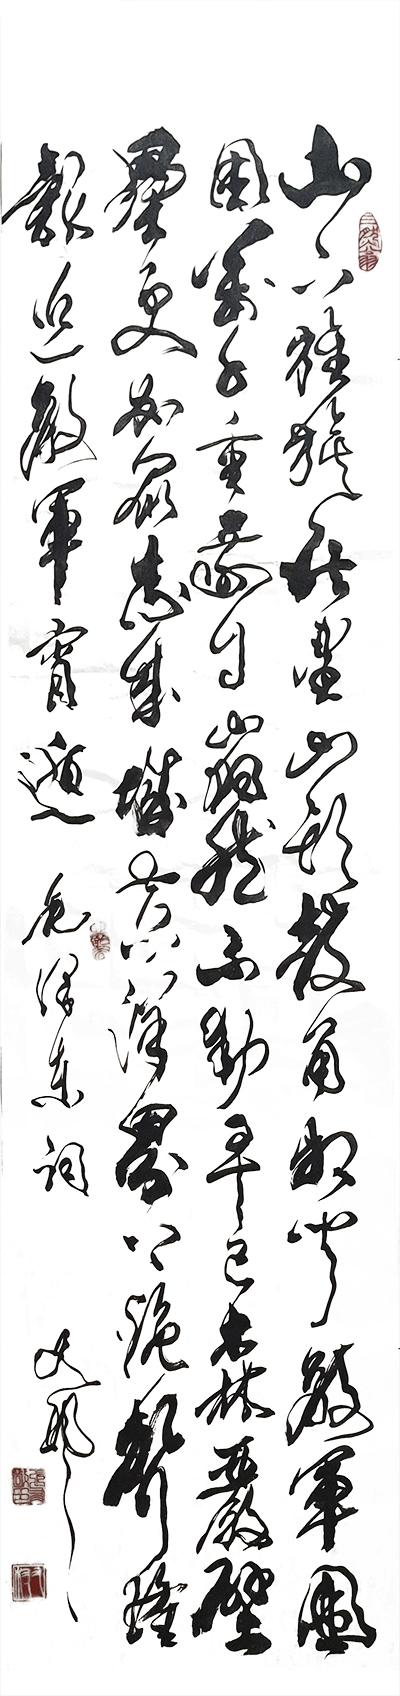 山下旌旗在望山頭鼓角相闻敵軍圍
困萬千重我自巋然不動早已森嚴壁
壘更加眾志成城黄洋界上炮聲隆
報道敵軍宵遁 毛澤东词